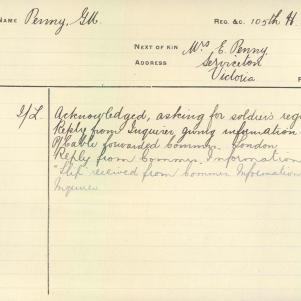 NAME Penny, G.M. REG. &C. 105th H
NEXT OF KIN Mrs E. Penny.
ADDRESS Serviceton
Victoria
I/L Acknowledged, asking for soldiers reg
Reply from Inquirer giving information
Cable forwarded Commr. London
Reply from Commr. Information
Slip received from Commr Information
Inquirer